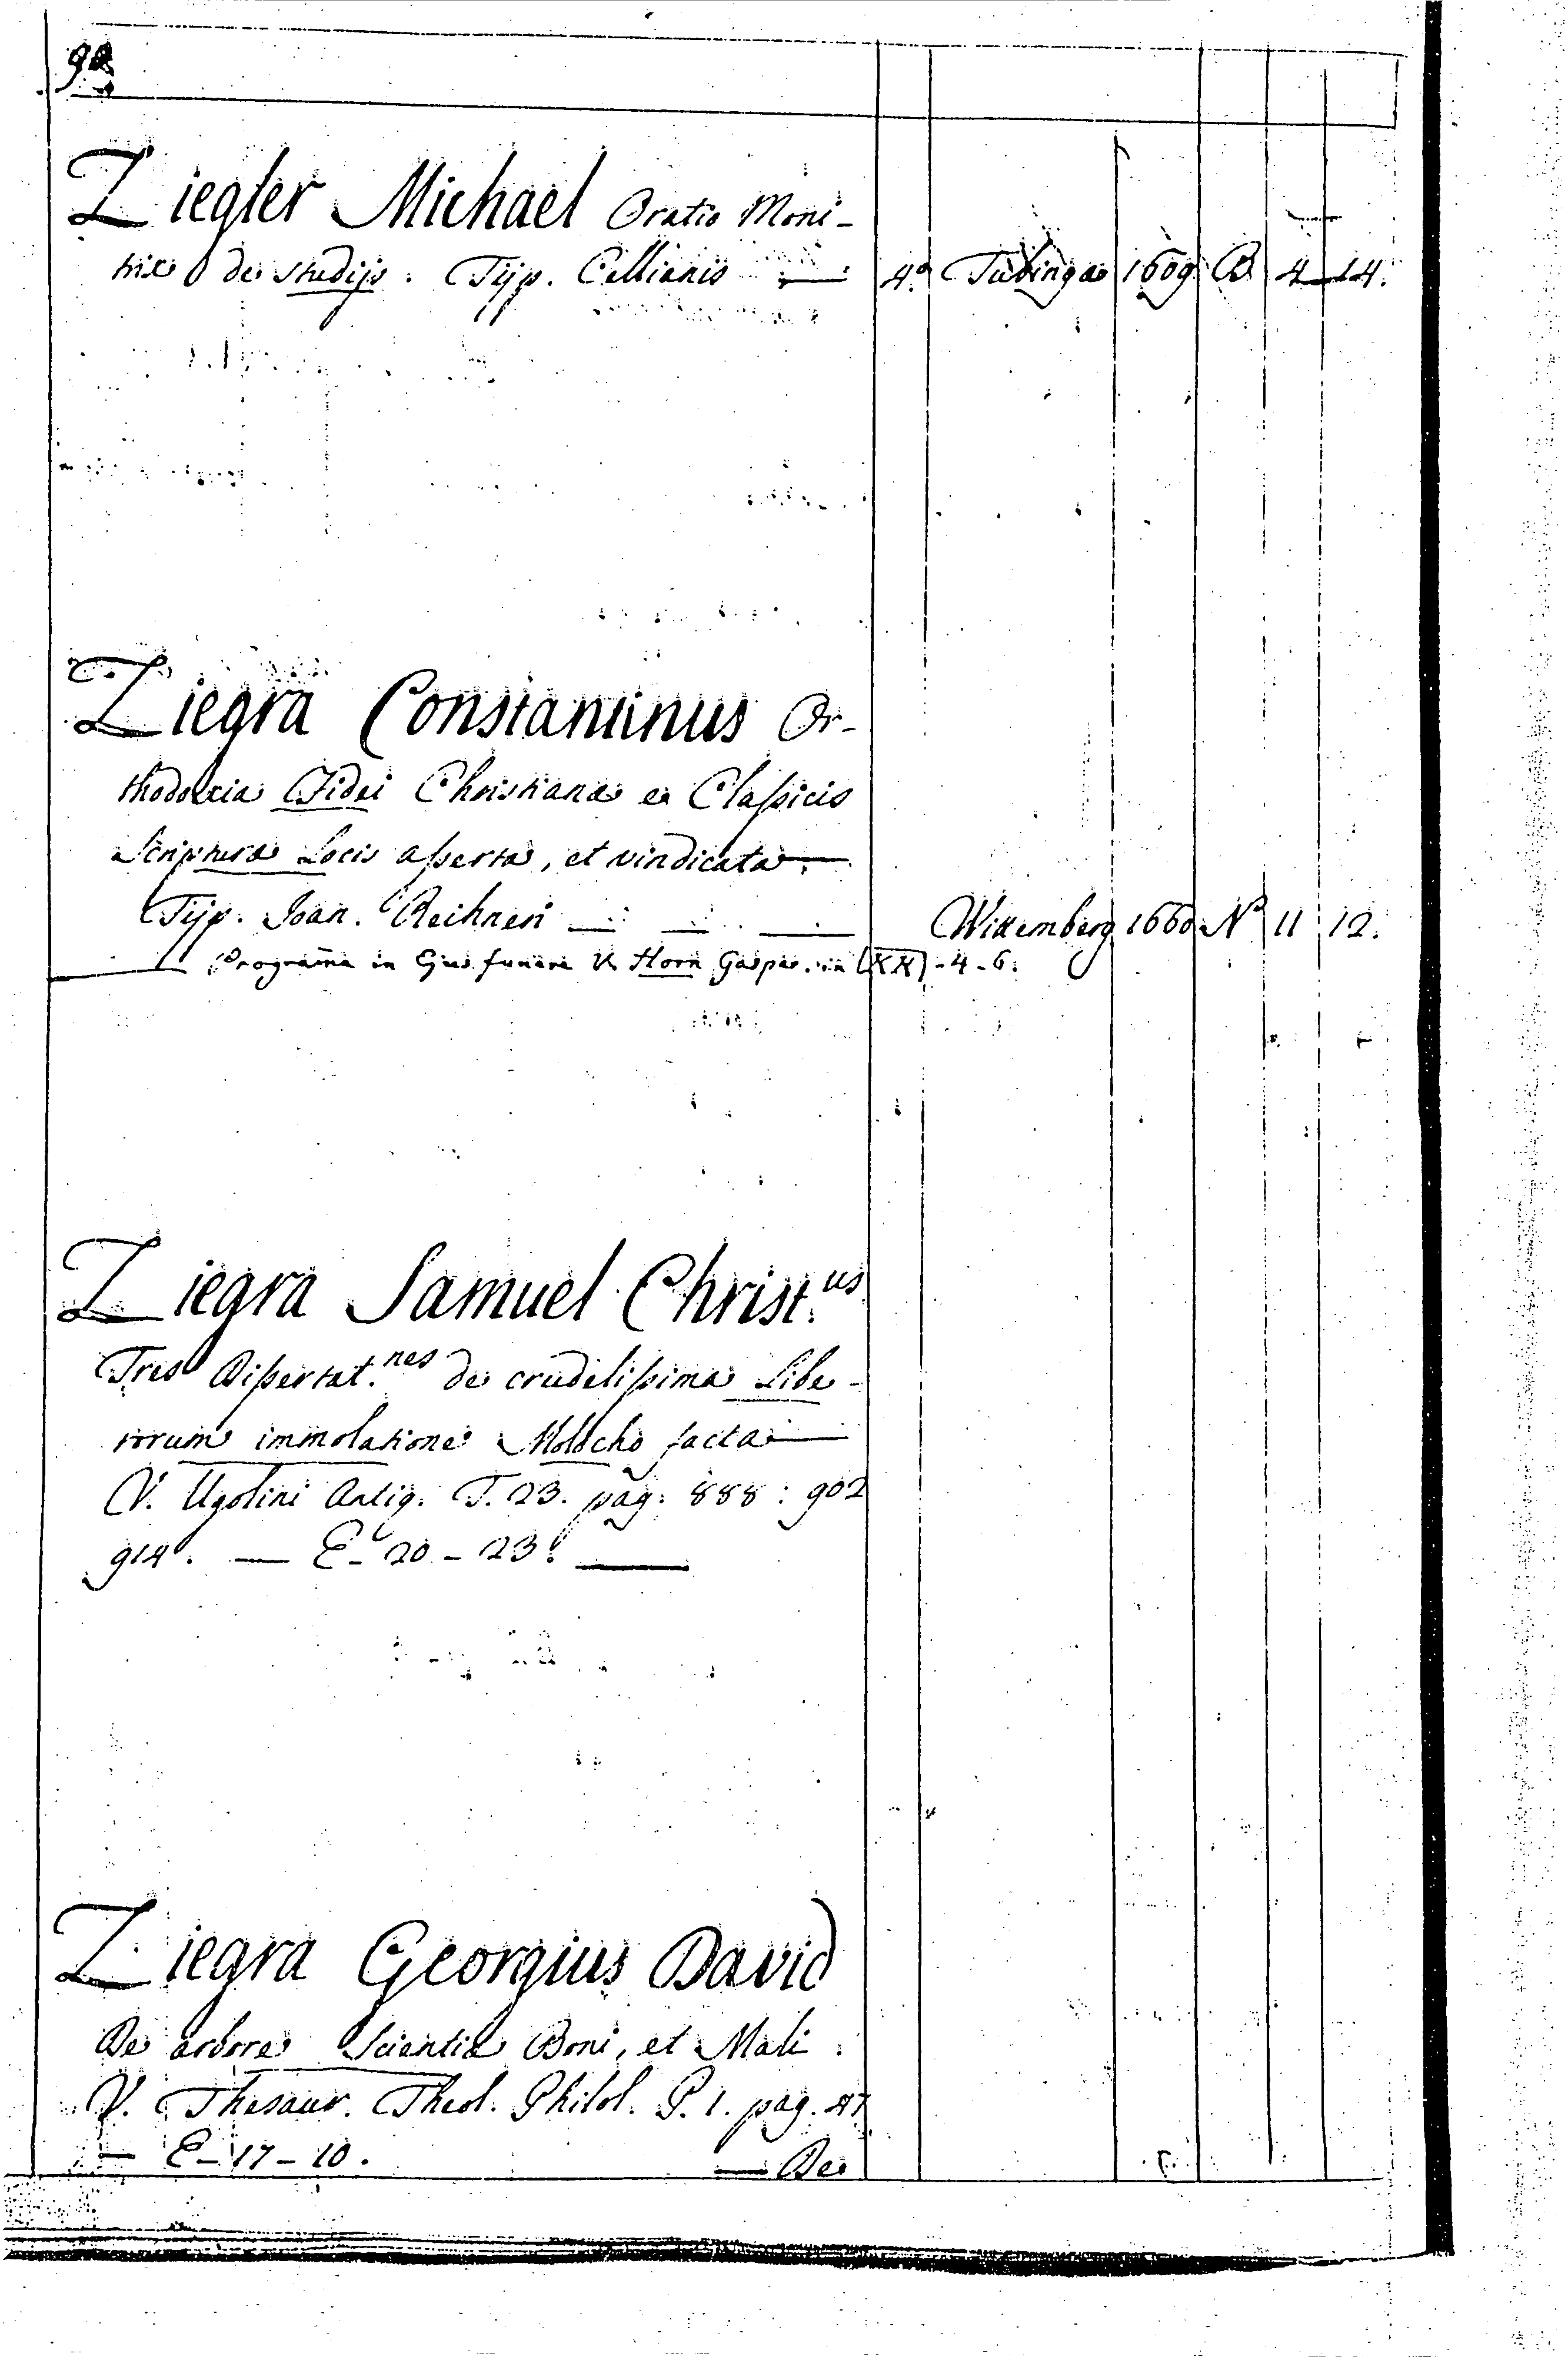 Ziegler Michael Oratio Moni-
trix de studijs. Typ. Cellianis — 4.º Tubingae 1609 B 4 14.
Ziegra Constantinus Or-
thodoxia Fidei Christianae ex Classicis
Scripturae Locis asserta, et vindicata.
Typ. Joan. Reichneri — — — Wittemberg 1660 N 11 12.
Programa in Ejus funere V. Horn Gaspar. in (XX) - 4 - 6.
Ziegra Samuel Christ.us
Tres Dissertat.nes de crudelissima Libe-
rorum immolatione Molocho facta —
V. Ugolini Antiq. T. 23. pag. 888 : 902
914. — E - 20 - 23. —
Ziegra Georgius David
De arbore Scientiae Boni, et Mali.
V. Thesaur. Theol. Philol. P. 1. pag. 47
— E - 17 - 10. — De